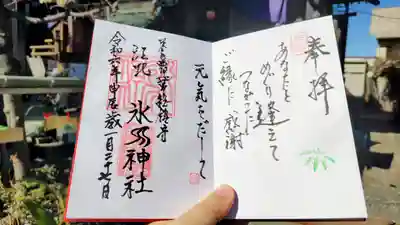 奉拝
あなたと
めぐり逢えて
つながった
ご縁に感謝
元気をだして
江北
氷川神社
令和六年甲辰歳一月二十七日